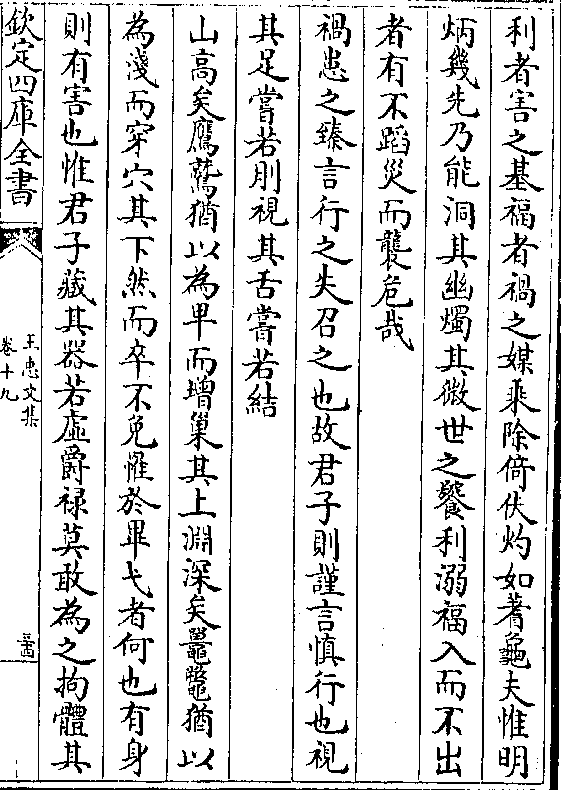 利者害之基福者禍之媒乘除倚伏灼如蓍龜夫惟明
炳幾先乃能洞其幽燭其微世之饕利溺福入而不出
者有不蹈災而襲危哉
禍患之臻言行之失召之也故君子則謹言慎行也視
其足嘗若刖視其舌嘗若結
山高矣鷹鷲猶以為卑而增巢其上淵深矣鼉鼈猶以
為淺而穿穴其下然而卒不免罹於畢弋者何也有身
則有害也惟君子藏其器若虛爵祿莫敢為之拘體其
欽定四庫全書
王忠文集
卷十九